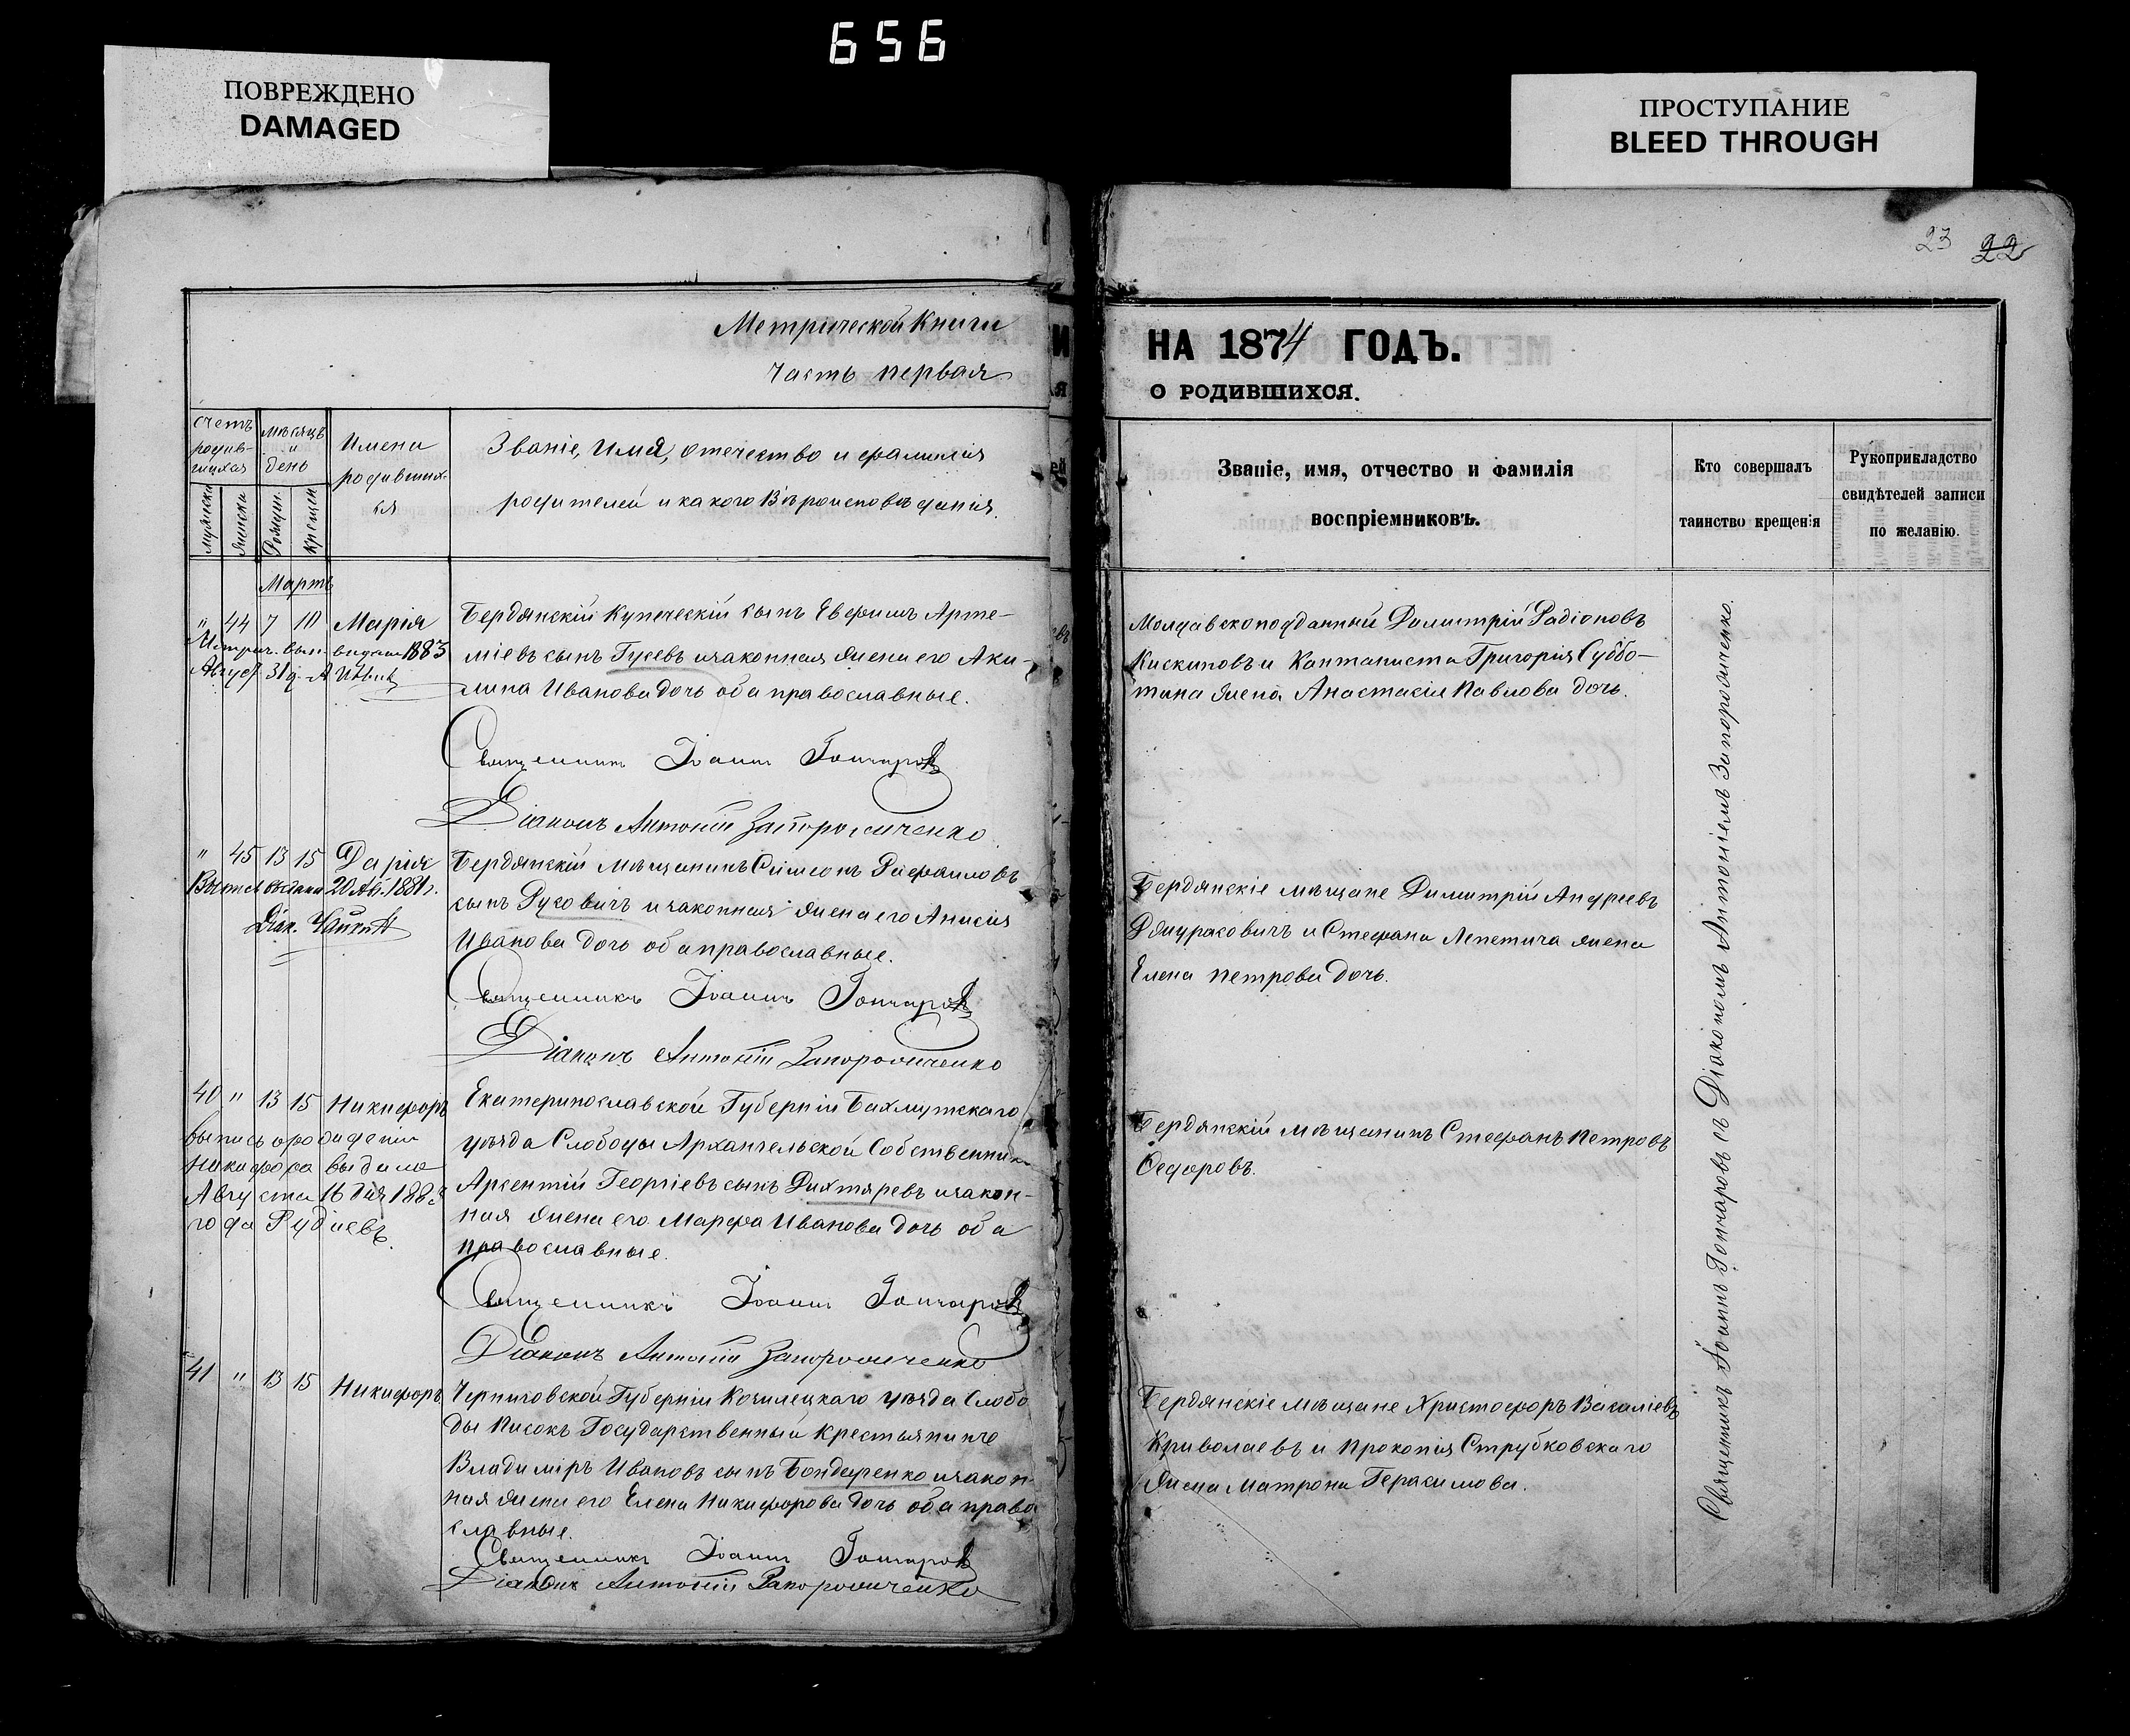 656
ПОВРЕЖДЕНО
DAMAGED
ПРОСТУПАНИЕ
BLEED THROUGH
23 22
Метрической Книги
часть первая
НА 1874 ГОДЪ.
О РОДИВШИХСЯ.
счетъ родив-шихся
мѣсяцъ и день
Имена родивших-ся
Званіе, Имя, отечество и фамилія
родителей и какого Вѣроисповѣданія.
мужеска
женска
Рожден.
крещен
Званіе, имя, отчество и фамилія
воспріемниковъ.
Кто совершалъ
таинство крещенія
Рукоприкладство
свидѣтелей записи
по желанію.
Мартъ
" 44 7 10 Марія
Метрич. вып. выдана 1883
Август 31 д.
Бердянскій Купеческій сынъ Евфимъ Арте-
міевъ сынъ Гусевъ изаконная жена его Аку-
лина Иванова дочь оба православные.
Священникъ Іоаннъ Гончаровъ
Діаконъ Антоній Запорожченко
Молдавскоподданный Димитрій Радіоновъ
Кискиновъ и Кантаниста Григорія Суббо-
тина жена Анастасія Павлова дочь.
" 45 13 15 Дарія
20 Авг. 1881 г.
Діак.
Бердянскій мѣщанинъ Симеонъ Рафаиловъ
сынъ Русовичъ и законная жена его Анисія
Иванова дочь оба православные.
Священникъ Іоаннъ Гончаровъ
Діаконъ Антоній Запорожченко
Бердянскіе мѣщане Димитрій Андреевъ
Джураковичъ и Стефана Лепетича жена
Елена Петрова дочь.
40 " 13 15 Никифоръ
выпись орождении
Никифора выдана
Августа 16 дня 188
года Рудиевъ.
Екатеринославской Губерніи Бахмутскаго
уѣзда Слободы Архангельской Собственникъ
Арсентій Георгіевъ сынъ Дихтяревъ изакон-
ная жена его Марфа Иванова дочь оба
православные.
Священникъ Іоаннъ Гончаровъ
Діаконъ Антоній Запорожченко
Бердянскій мѣщанинъ Стефанъ Петровъ
Федоровъ.
41 " 13 15 Никифоръ
Черниговской Губерніи Козилецкаго уѣзда Слобо
ды Писокъ Государственный Крестьянинъ
Владиміръ Ивановъ сынъ Бондаренко изакон-
ная жена его Елена Никифорова дочь оба право
славные.
Священникъ Іоаннъ Гончаровъ
Діаконъ Антоній Запорожченко
Бердянскіе мѣщане Христофоръ Василіевъ
Криволаевъ и Прокопія Струбковскаго
жена Матрона Герасимова.
Священникъ Іоаннъ Гончаровъ съ Діакономъ Антоніемъ Запорожченко.